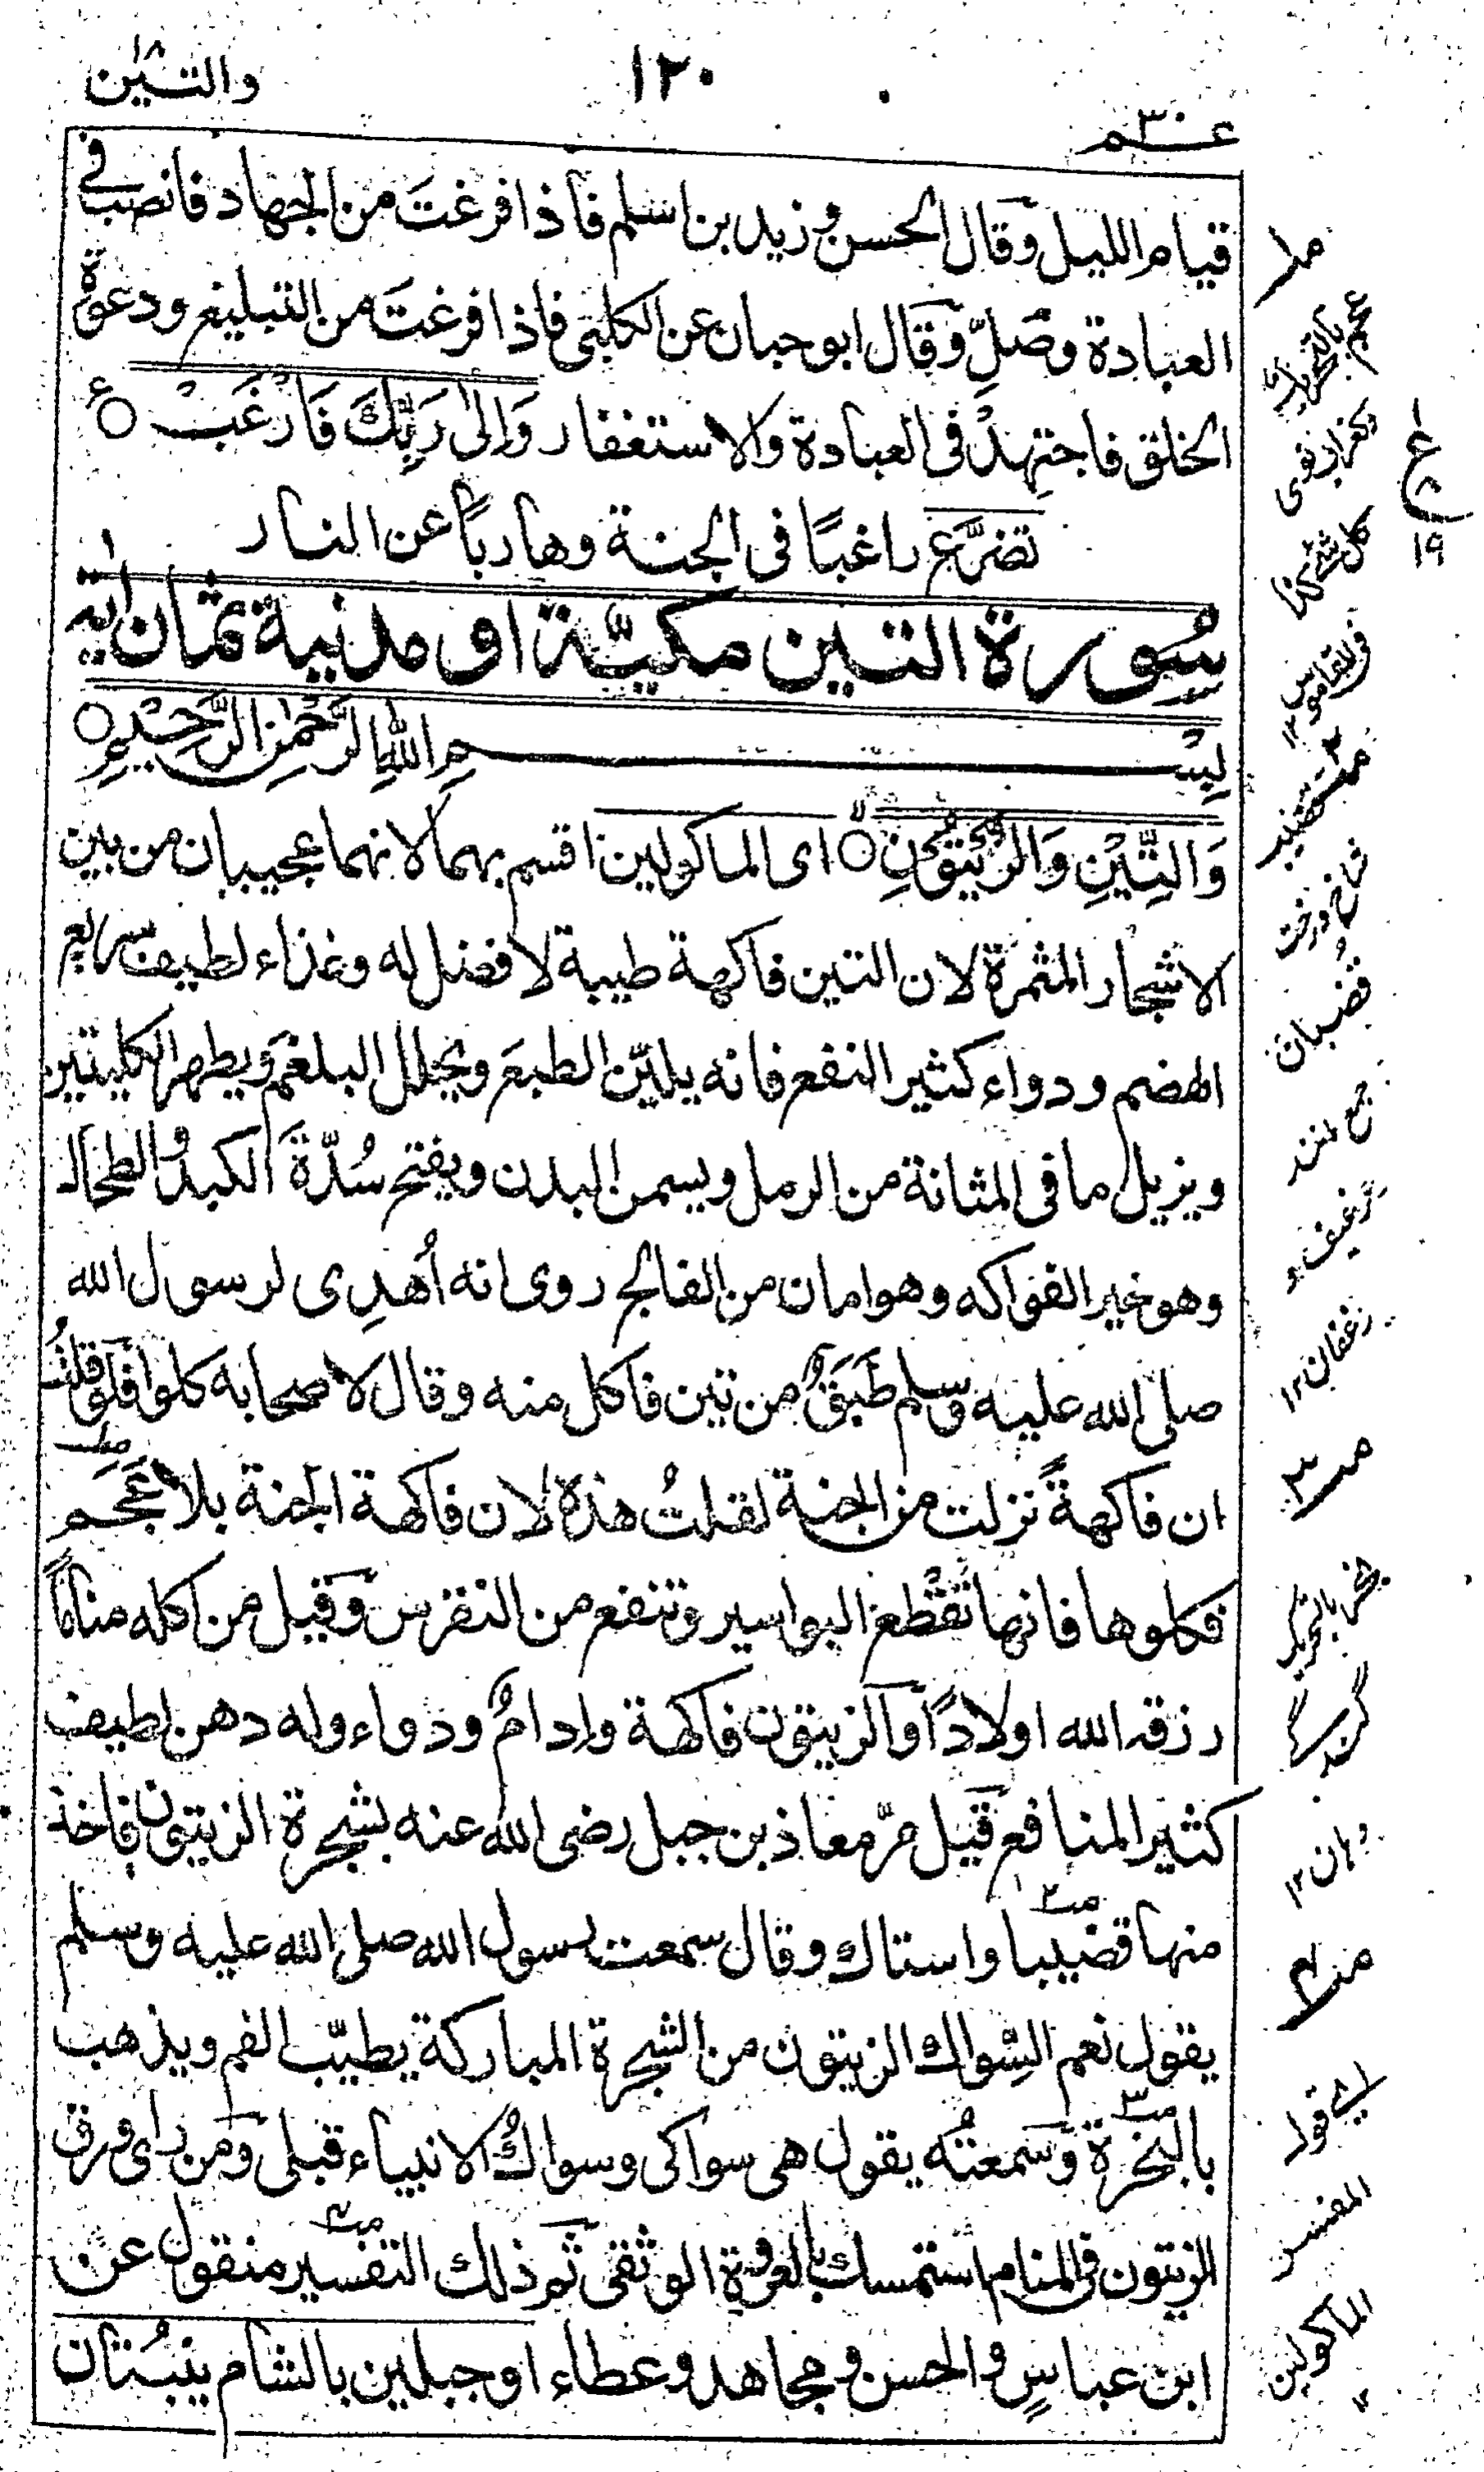 والتين ١٨
١٢٠
عم ٣٠
قيام الليل وقال الحسن وزيد بن اسلم فاذا فرغتَ من الجهاد فانصب في
العبادة وصَلِّ وقال ابو حبان عن الكلبى فاذا فرغتَ من التبليغ ودعوة
الخلق فاجتهِدْ فى العبادة والاستغفار وَاِلٰى رَبِّكَ فَارْغَبْ ○ ع
تضرَّع راغبًا فى الجنة وهاربًا عن النار
سُورة التين مكيّة او مدنية ثمان اٰية
بِسْمِ اللهِ الرَّحْمٰنِ الرَّحِيْمِ ○
وَالتِّيْنِ وَالزَّيْتُوْنِ ○ اى الماكولين اقسم بهما لانهما عجيبان من بين
الاشجار المثمرة لان التين فاكهة طيبة لا فضل له وغذاء لطيف سريع
الهضم ودواء كثير النفع فانه يليّن الطبعَ ويحلل البلغم ويطهر الكليتين
ويزيل ما فى المثانة من الرمل ويسمن البدن ويفتح سُدّةَ الكبد والطحال
وهو خير الفواكه وهو امان من الفالج روى انه اُهدِى لرسول الله
صلى الله عليه وسلم طَبَقٌ من تين فاكل منه وقال لاصحابه كلوا فلو قلتُ
ان فاكهةً نزلت من الجنة لقلتُ هذه لان فاكهة الجنة بلا عَجَم
فكلوها فانها تَقْطع البواسير وتنفع من النقرس وقيل من اكله منامًا
رزقه الله اولادًا والزيتون فاكهة وادامٌ ودواء وله دهن لطيف
كثير المنافع قيل مرَّ معاذ بن جبل رضى الله عنه بشجرة الزيتون فاخذ
منها قضيبا واستاك وقال سمعت رسول الله صلى الله عليه وسلم
يقول نعم السِّواك الزيتون من الشجرة المباركة يطيّب الفم ويذهب
بالبخرة وسمعتُه يقول هى سواكى وسواكُ الانبياء قبلى ومن رأى ورق
الزيتون فى المنام استمسك بالعروة الوثقى ثم ذلك التفسير منقول عن
ابن عباسٍ والحسن ومجاهد وعطاء او جبلين بالشام ينبُتان
ع
١٩
عجم بالتحريك
كل شئ كذا
فى القاموس ١٢
شاخ درخت
قُضبان
جمع مثل
رغيف و
رغفان ١٢
بخر بالتحريك
گندگی
دہان ١٢
اى قوله
المفسر
الماكولين
١٢